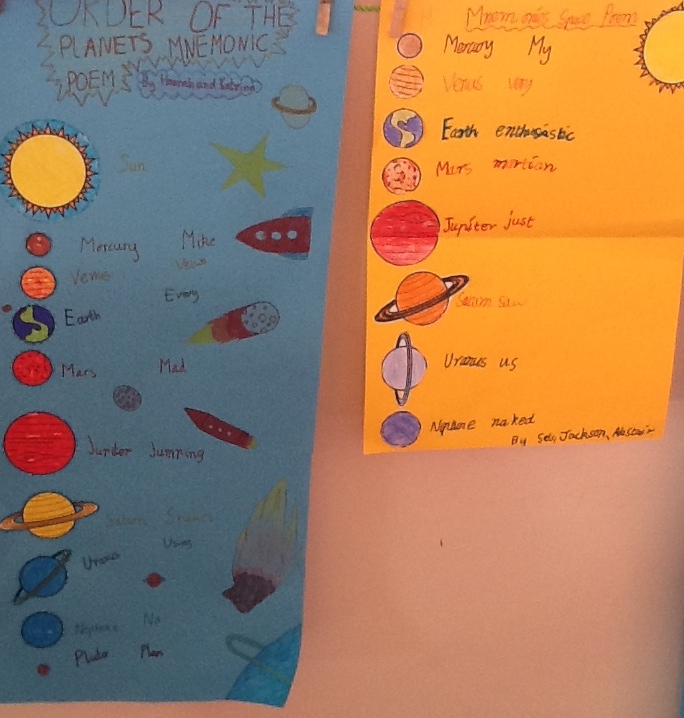 ORDER OF THE
PLANETS MNEMONIC
POEM By Hannah and Katrina
Sun
Mercury Mike
Venus Views
Earth Every
Mars Mad
Jupiter Jumping
Saturn
Uranus Using
Neptune No
Pluto Plan
Mnemonics Space Poem
Mercury My
Venus very
Earth enthusiastic
Mars martian
Jupiter just
Saturn saw
Uranus us
Neptune naked
By Seb, Jackson, Alastair